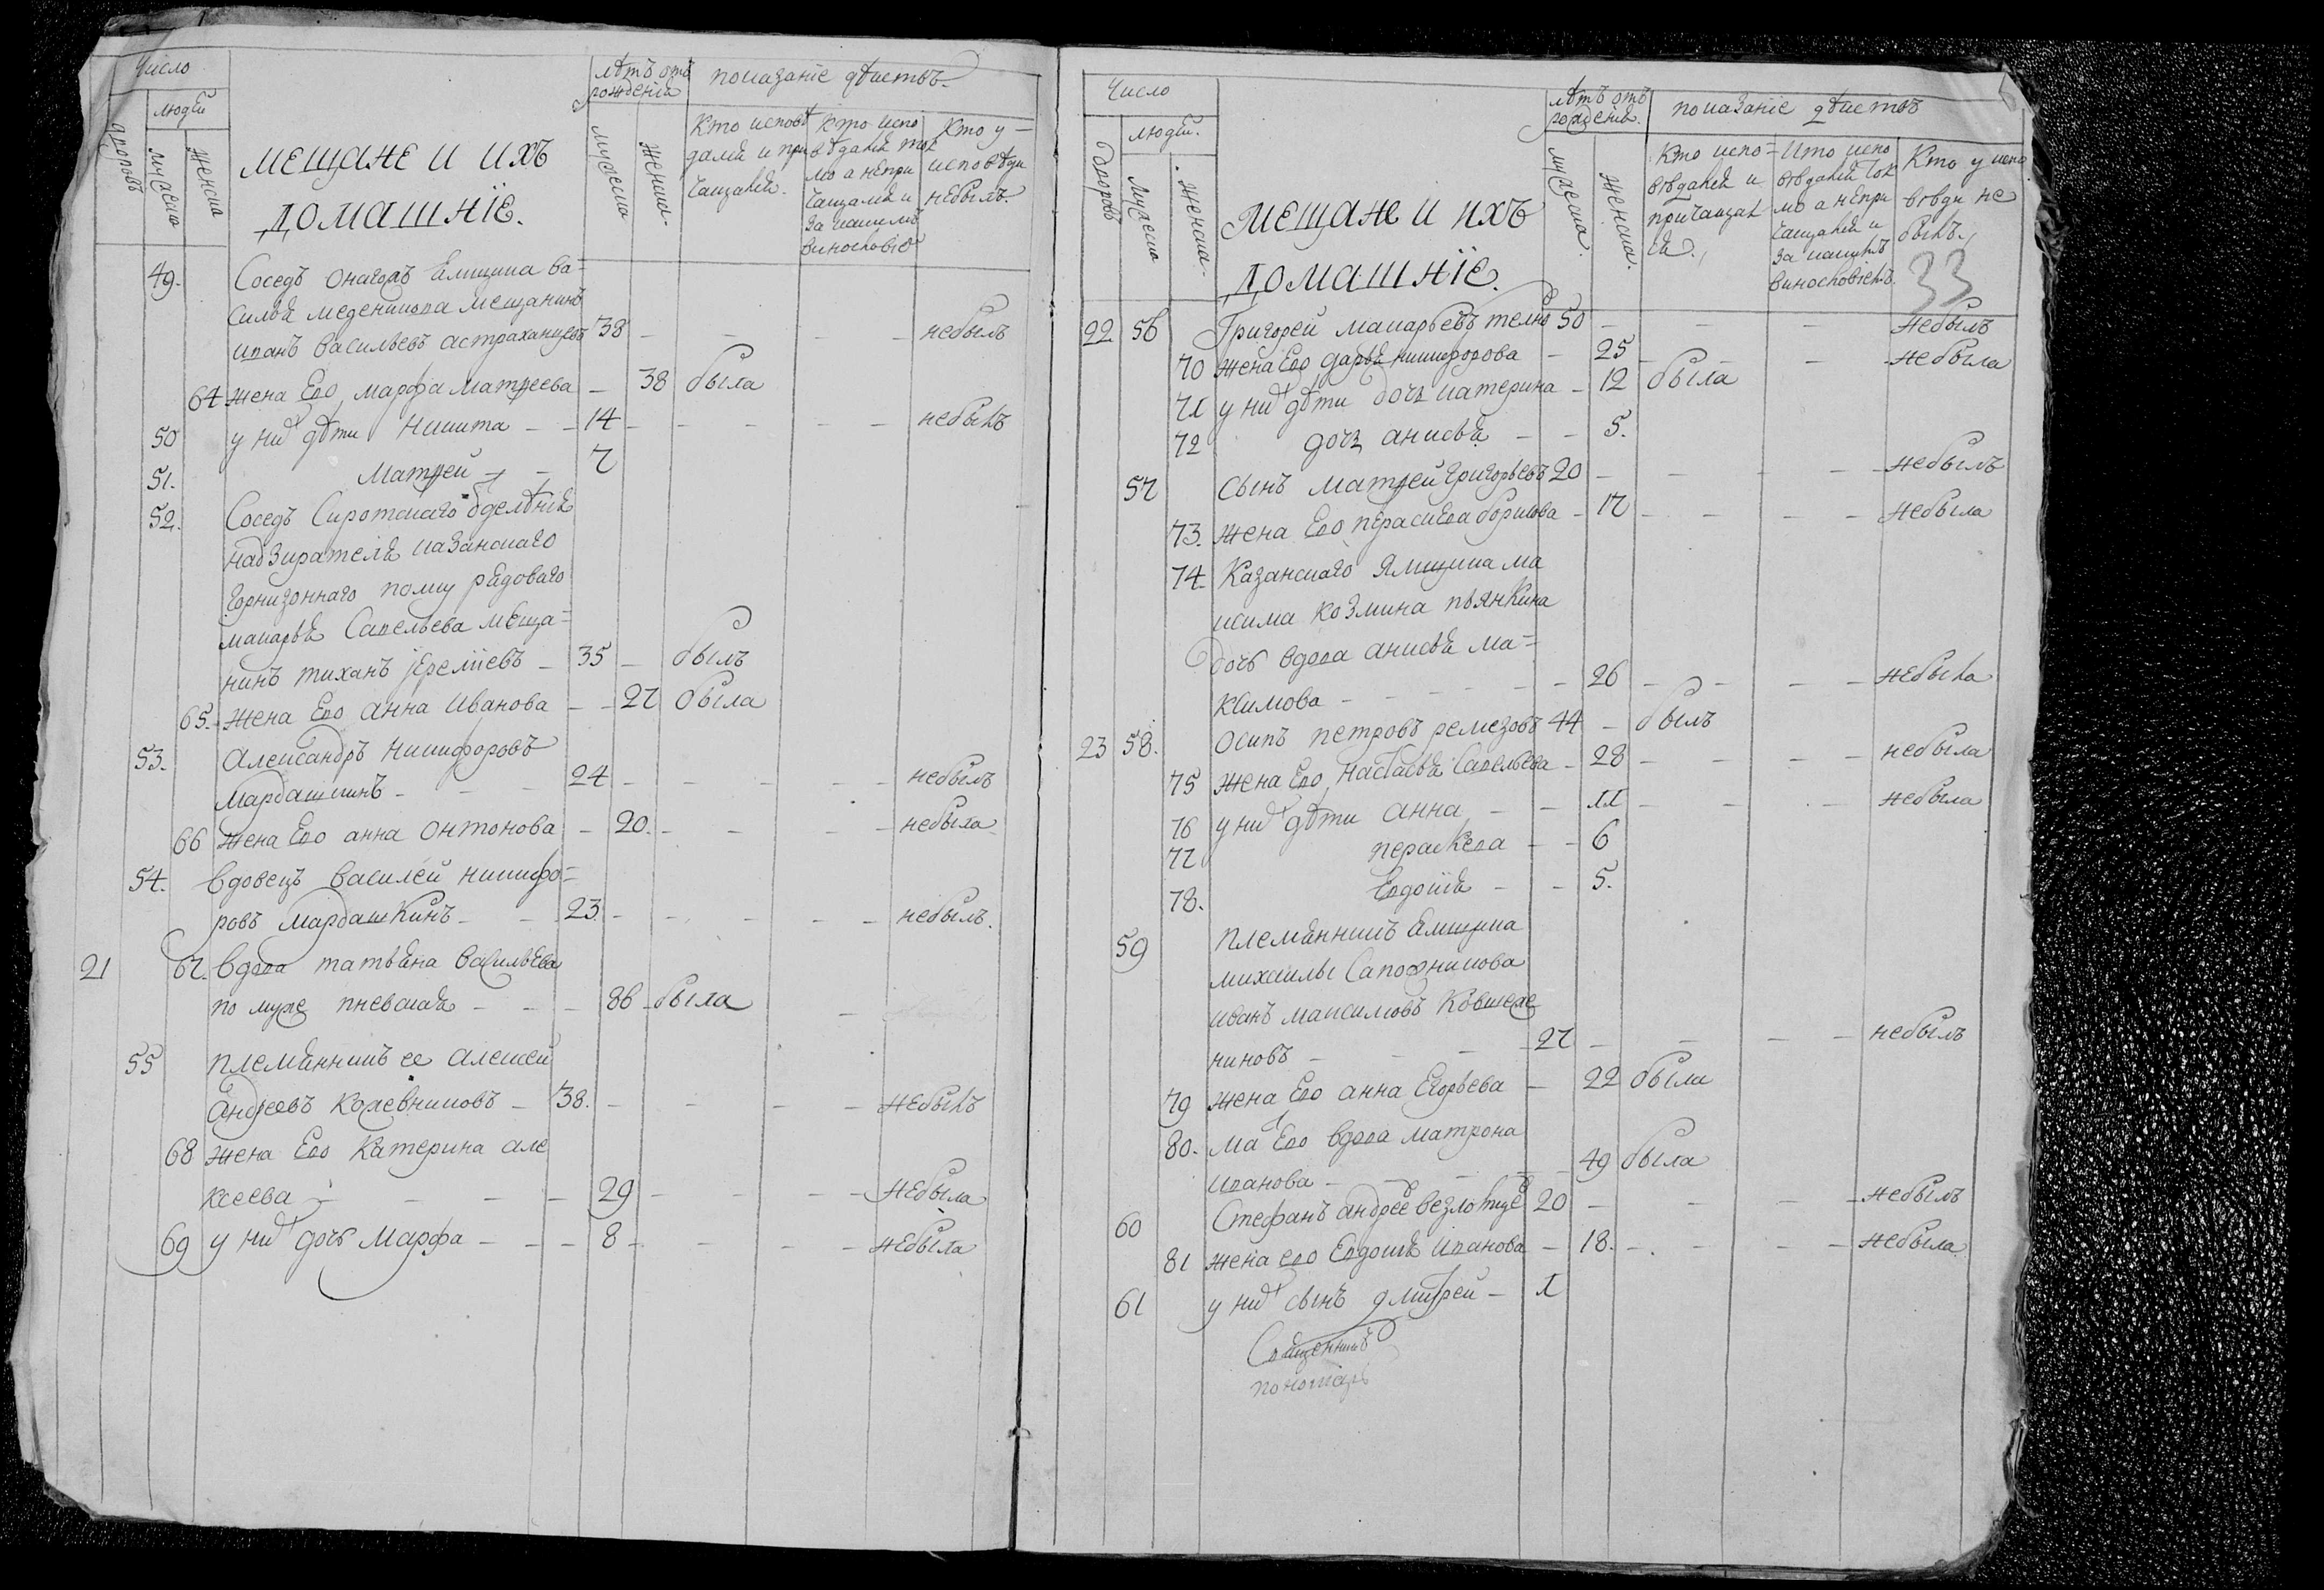 Число
людей
дворовъ
мужеска
женска
мещане и ихъ
домашнїе.
лѣтъ отъ
рожденїя
мужеска
женска
показанїе дѣиствъ
Кто исповѣ
далсѧ и при
чащалсѧ.
Кто испо
вѣдалсѧ ток
мо а непри
чащалсѧ и
за какимъ
винословїе
Кто у
исповѣди
небылъ
49. Соседъ онагожъ Ѧмщика ва=
силья меденикова мещанинъ
иванъ васильевъ астраханцевъ 38 — — — небылъ
64 жена Его марфа матѳеева — 38 была
50 у ниⷯ дѣти никита — — 14 — — — — небылъ
51. Матѳей — — 7
52. Соседъ Сиротскаго
надзирателѧ казанскаго
горнизоннаго полку рѧдоваго
макарьѧ Савельева меща=
нинъ тиханъ ереміевъ — 35 — былъ
65. жена Его анна иванова — — 27 была
53. Александръ никифоровъ
Мардашкинъ — — — 24 — — — — небылъ
66 жена Его анна онтонова — 20. — — — — небыла
54. вдовецъ василей никифо=
ровъ мардашкинъ — — 23 — — — — небылъ.
21 67. вдова татьѧна васильева
по муже пневскаѧ — — — 86 была
55 племѧнникъ ее алексей
андреевъ кожевниковъ — 38. — — — — небылъ
68 жена Его Катерина але
ксеева — — — — 29 — — — небыла
69 у ниⷯ дочь Марфа — — — 8 — — — — небыла
Число
людей.
дворовъ
мужеска
женска
мещане и ихъ
домашнїе.
лѣтъ отъ
рожденїѧ.
мужеска
женска.
показанїе дѣиствъ
Кто испо=
вѣдалсѧ и
причащал
сѧ.
Кто испо
вѣдалсѧ ток
мо а непри
чащалсѧ и
за какимъ
винословіемъ.
Кто у испо
вѣди не
былъ.
33
22 56 Григорей макарьевъ 50 — — — небылъ
70 жена Его дарьѧ никифорова — 25 — — — небыла
71 у ниⷯ дѣти дочь катерина — 12 была
72 дочь анисьѧ — — 5.
57 сынъ матѳей григорьевъ 20 — — — — небылъ
73. жена Его параскева борисова — 17 — — — — небыла
74. Казанскаго Ямщика ма
ксима козмина пьянкина
дочь вдова анисьѧ ма=
ксимова — — — — 26 — — — — небыла
23 58. Осипъ петровъ ремезовъ 44 — былъ
75 жена Его настасьѧ Савельева — 28 — — — — небыла
76 у ниⷯ дѣти анна — — 11 — — — небыла
77 параскева — — 6
78. Евдокіѧ — — 5.
59 племѧнникъ Ѧмщика
михаилы Сапожникова
иванъ максимовъ
никовъ — — — 27 — — — — небылъ
79 жена Его анна Егорьева — 22 была
80. маⷮ Его вдова матрона
иванова — — — — 49 была
60 Стефанъ андреевъ 20 — — — небылъ
81 жена его Евдокіѧ иванова — 18. — — — — небыла
61 у ниⷯ сынъ дмитрей — 1
Свѧщенникъ